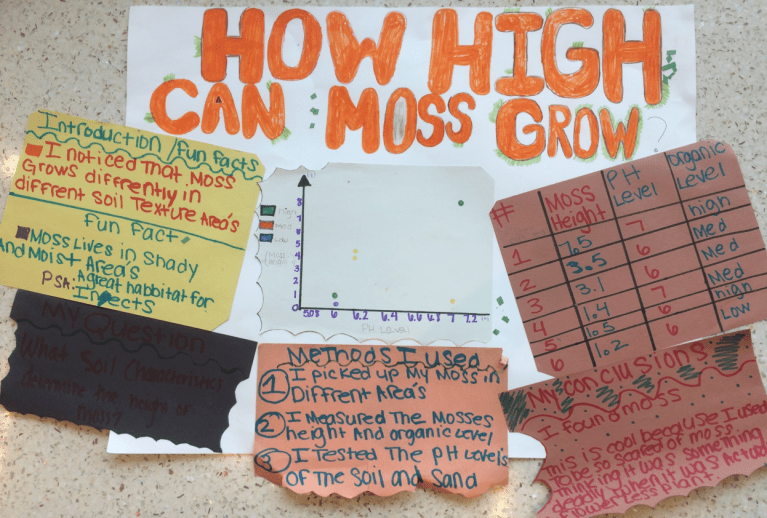 HOW HIGH
CAN MOSS GROW?
Introduction/Fun Facts
I noticed that MOSS
Grows diffrently in
diffrent Soil Texture Area's
Fun Fact
Moss Lives in Shady
And Moist Area's
PSA: A great habbitat for
Insects
My Question
What Soil Characteristics
determine the height of
moss?
High
Med
Low
8
5
4
3
2
1
0
6 6.2 6.4 6.6 6.8 7 7.2
PH Level
Methods I used
1 I picked up My Moss in
Diffrent Area's
2 I Measured The Mosses
height And organic Level
3 I Tested The PH Level's
of The Soil and Sand
# MOSS Height PH Level organic Level
1 7.5 7 high
2 3.5 6 Med
3 3.1 6 Med
4 1.4 7 Med
5 1.5 6 high
6 1.2 6 Low
My conclusions
I found moss
This is cool because I used
To be so scared of moss
Thinking it was something
deadly when it was
plant